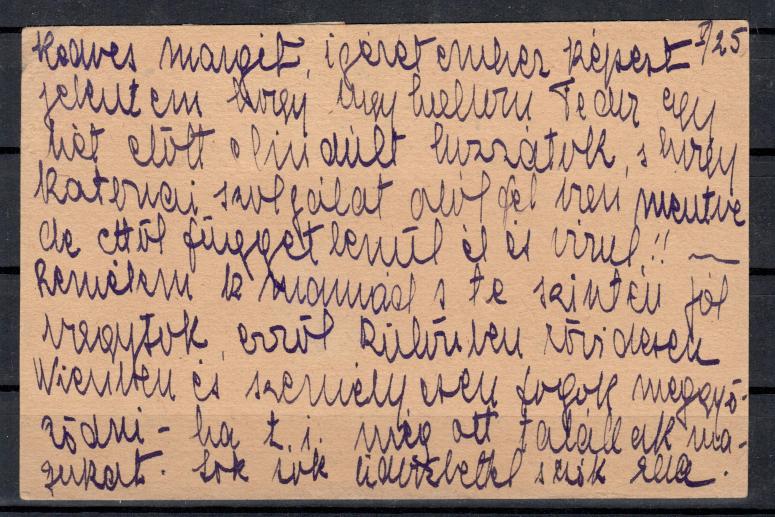 Kedves Margit, igéret ember képest I/25
jelentem hogy ugy hallom Fedor egy
hét előtt elindúlt hozzátok, s hogy
katonai szolgálat alól fel van mentve
de ettől függetlenűl él és virul!! —
Remélem k. mamád s te szintén jól
vagytok, erről különben rövidesen
Wienben és személyesen fogok meggyő-
ződni – ha t. i. még ott talállak ma-
gukat. Sok sok üdvözlettel